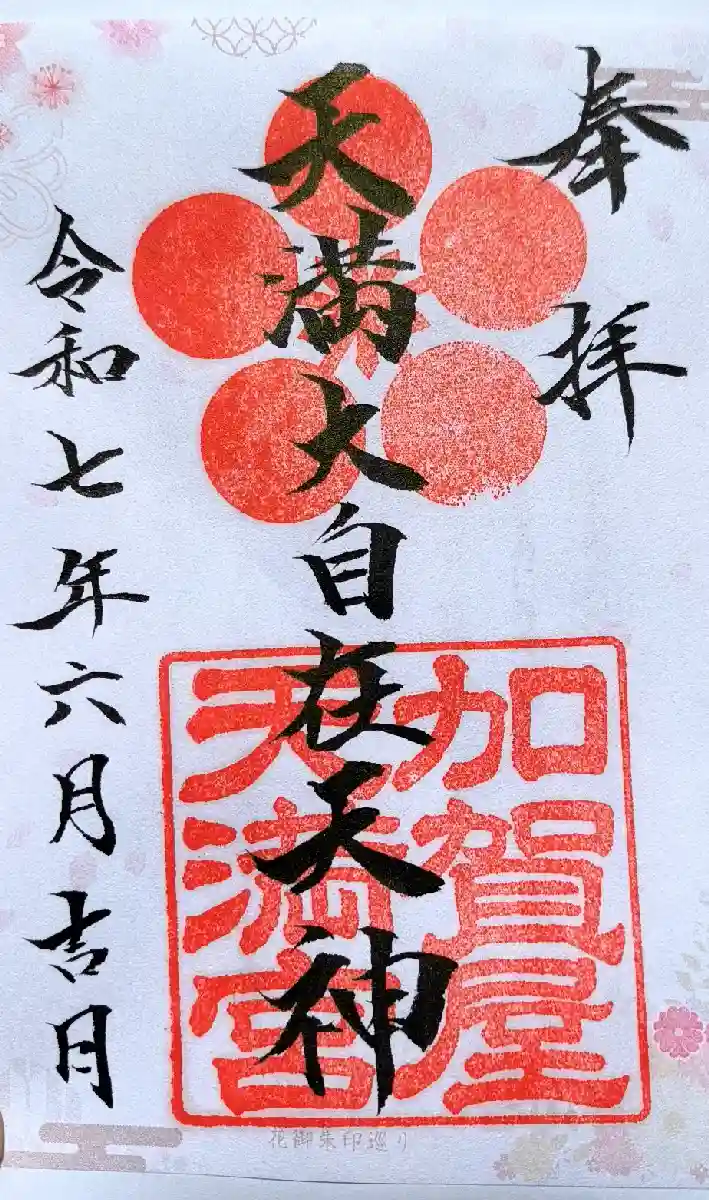 奉拝
天満大自在天神
令和七年六月吉日
加賀屋
天満宮
花御朱印巡り